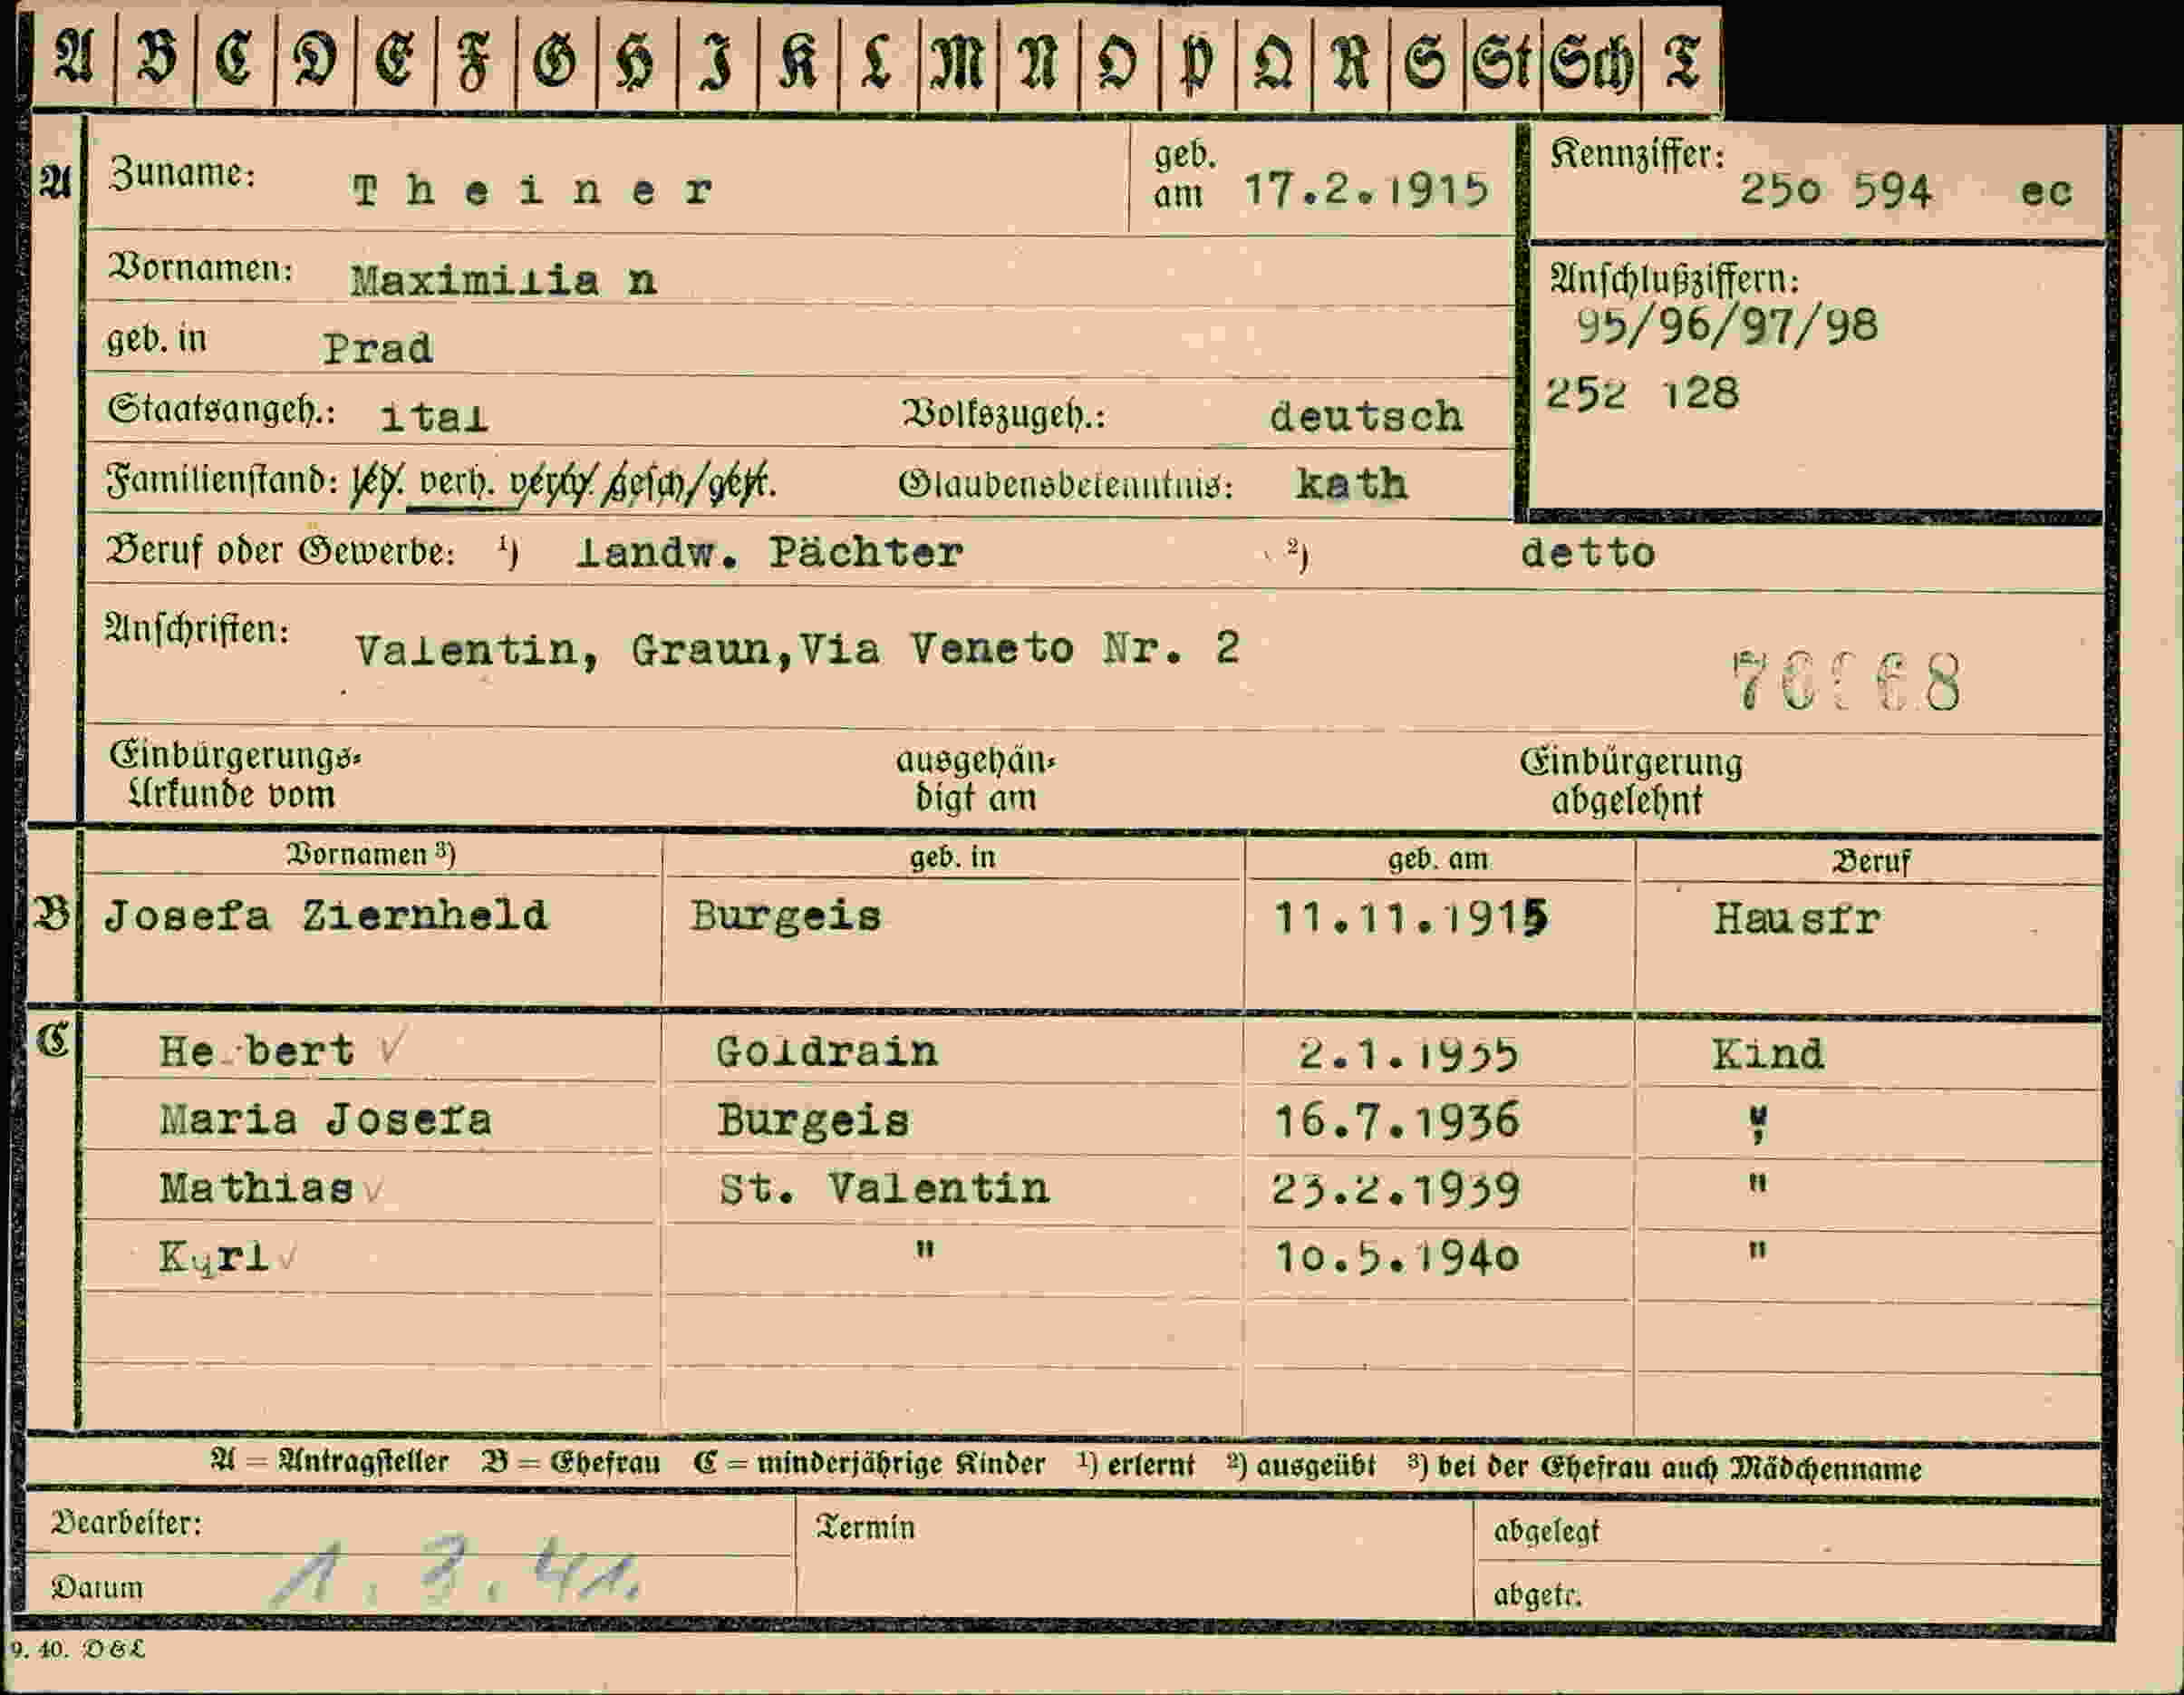 A B C D E F G H I K L M N O P Q R S St Sch T
A Zuname: Theiner geb. am 17.2.1915 Kennziffer: 25o 594 ec
Vornamen: Maximilia n
Anschlußziffern:
95/96/97/98
geb. in Prad
252 128
Staatsangeh.: ital Volkszugeh.: deutsch
Familienstand: led. verh. verw. gesch/getr. Glaubensbekenntnis: kath
Beruf oder Gewerbe: ¹) landw. Pächter ²) detto
Anschriften: Valentin, Graun,Via Veneto Nr. 2
Einbürgerungs-
Urkunde vom
ausgehän-
digt am
Einbürgerung
abgelehnt
Vornamen ³) geb. in geb. am Beruf
B Josefa Ziernheld Burgeis 11.11.1915 Hausfr
C Herbert ✓ Goldrain 2.1.1935 Kind
Maria Josefa Burgeis 16.7.1936 "
Mathias ✓ St. Valentin 23.2.1939 "
Karl ✓ " 10.5.1940 "
A = Antragsteller B = Ehefrau C = minderjährige Kinder ¹) erlernt ²) ausgeübt ³) bei der Ehefrau auch Mädchenname
Bearbeiter: Termin abgelegt
Datum 1.3.41. abgetr.
9. 40. DGL